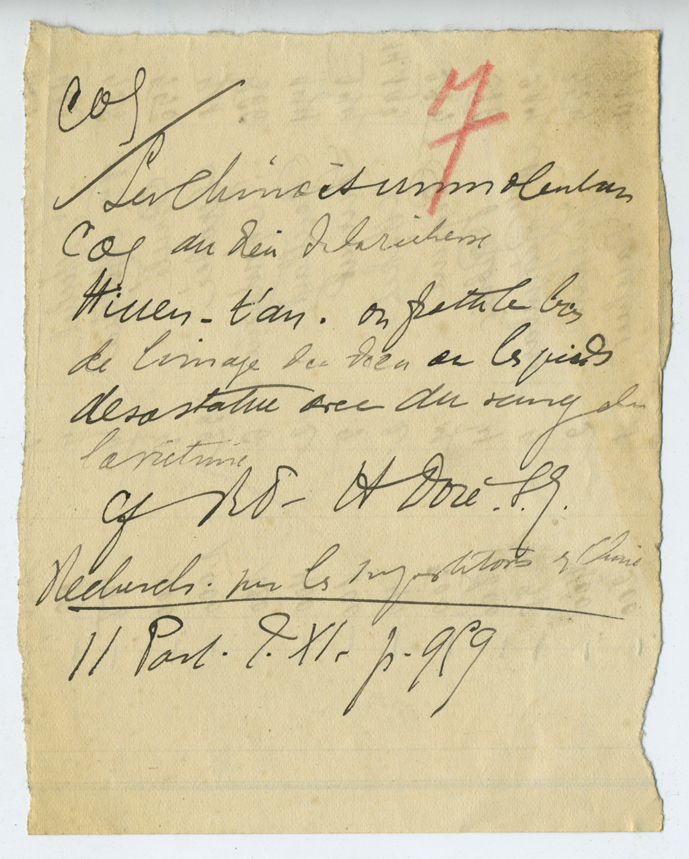 Coq
7
Les Chinois immolent un
Coq au Dieu de la richesse
Hiuen-t'an. on frotte le bas
de l'image du dieu ou les pieds
de sa statue avec du sang de
la victime
cf H Doré. S.J.
Recherches sur les superstitions en Chine
II Part. T. XI. p. 959